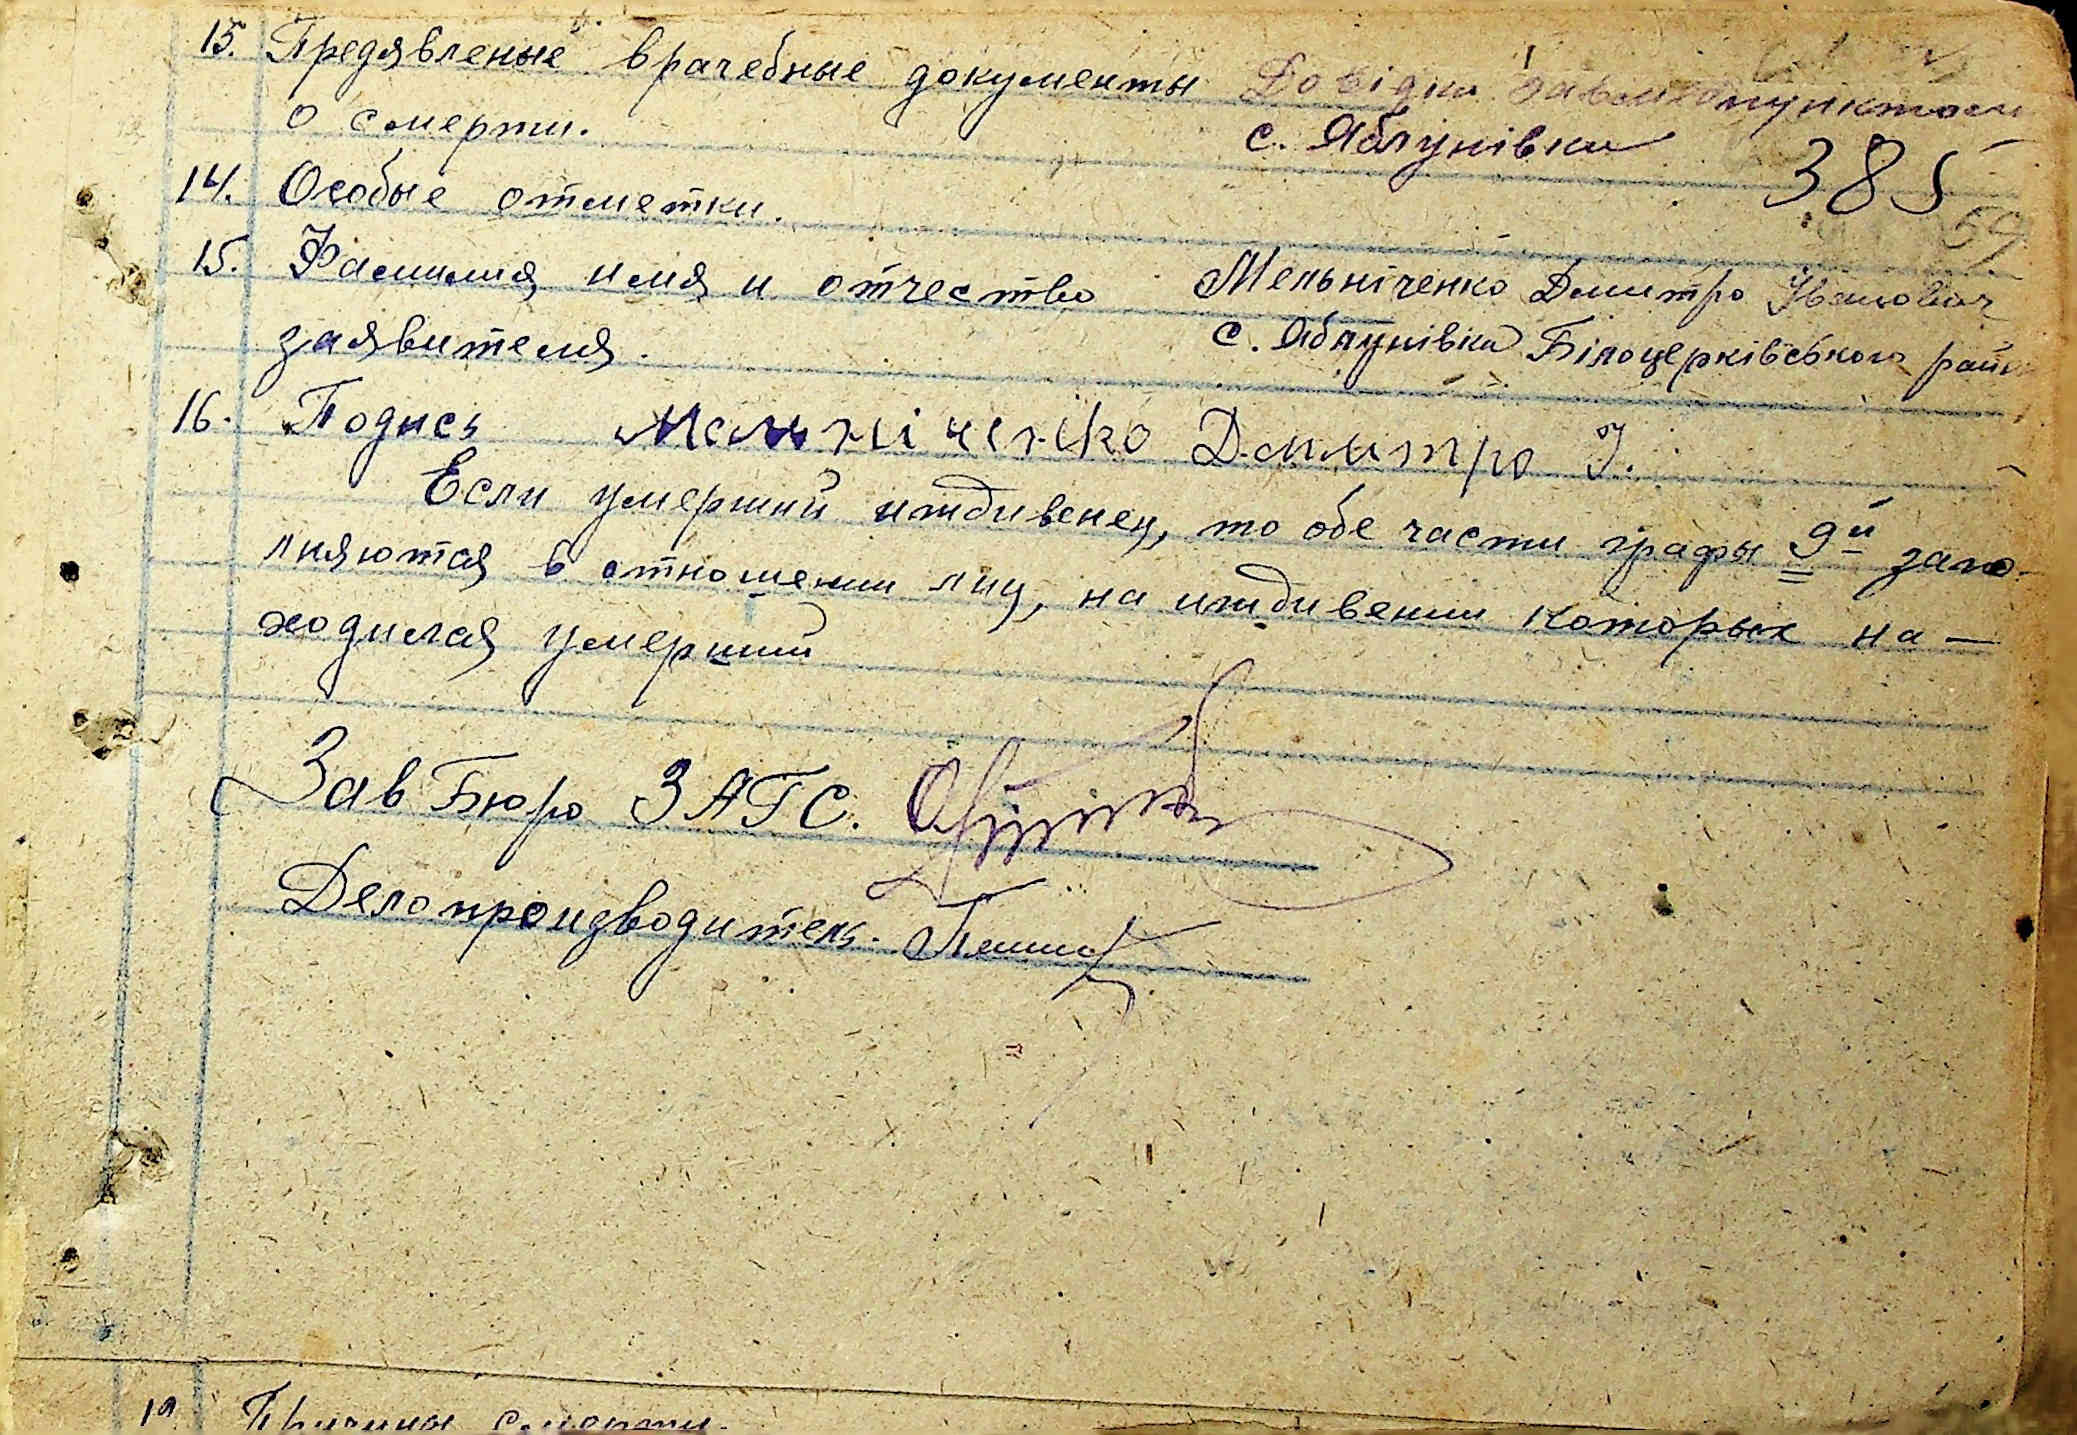 15. Предявленые врачебные документы Довідка завмедпунктом
о смерти. с. Яблунівка
385
59
14. Особые отметки.
15. Фамилия, имя и отчество Мельніченко Дмитро Іванович
заявителя. с. Яблунівка Білоцерківського райо
16. Подись Мельніченко Дмитро І.
Если умерший иждивенец, то обе части графы 9й запо-
лняются в отношении лиц, на иждивении которых на-
ходился умерший
Зав Бюро ЗАГС.
Делопроизводитель.
Причины смерти.